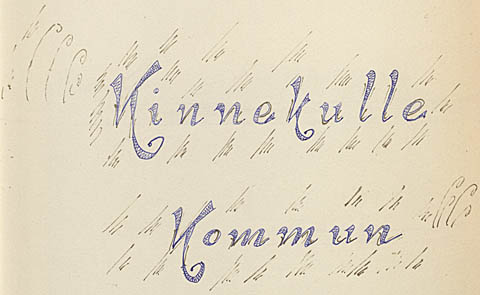 Kinnekulle
Kommun